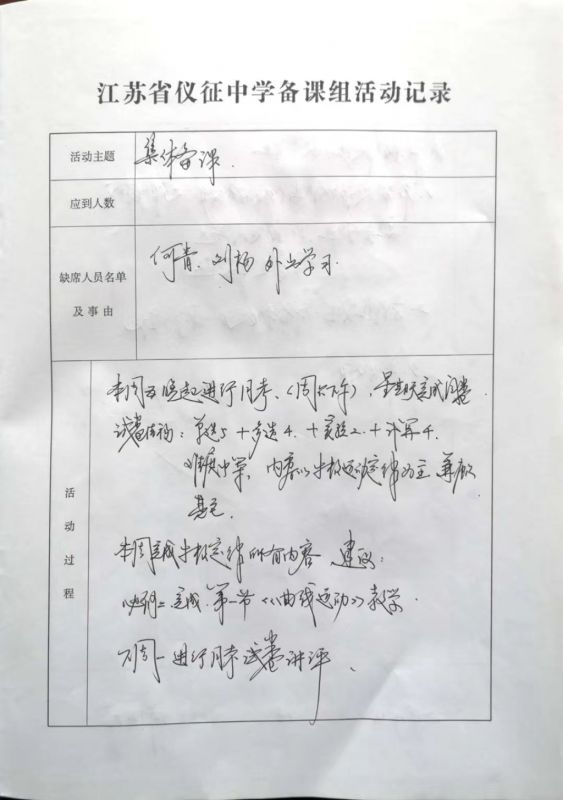 江苏省仪征中学备课组活动记录
活动主题
集体备课.
应到人数
缺席人员名单
及事由
何青、刘杨 外出学习.
活动过程
本周五晚起进行月考、(周六下午),星期天完成阅卷
试卷结构:单选5+多选4.+实验2.+计算4.
难度中等,内容以牛顿运动定律为主 兼顾
其它.
本周完成牛顿定律所有内容 建议:
完成.第一节《曲线运动》教学.
下周一进行月考试卷讲评、